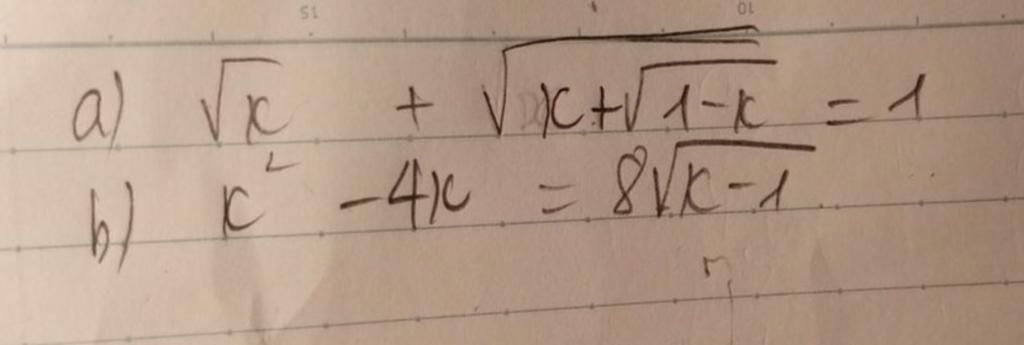 a) √x + √(x+√(1-x)) = 1
b) x² - 4x = 8√(x-1)